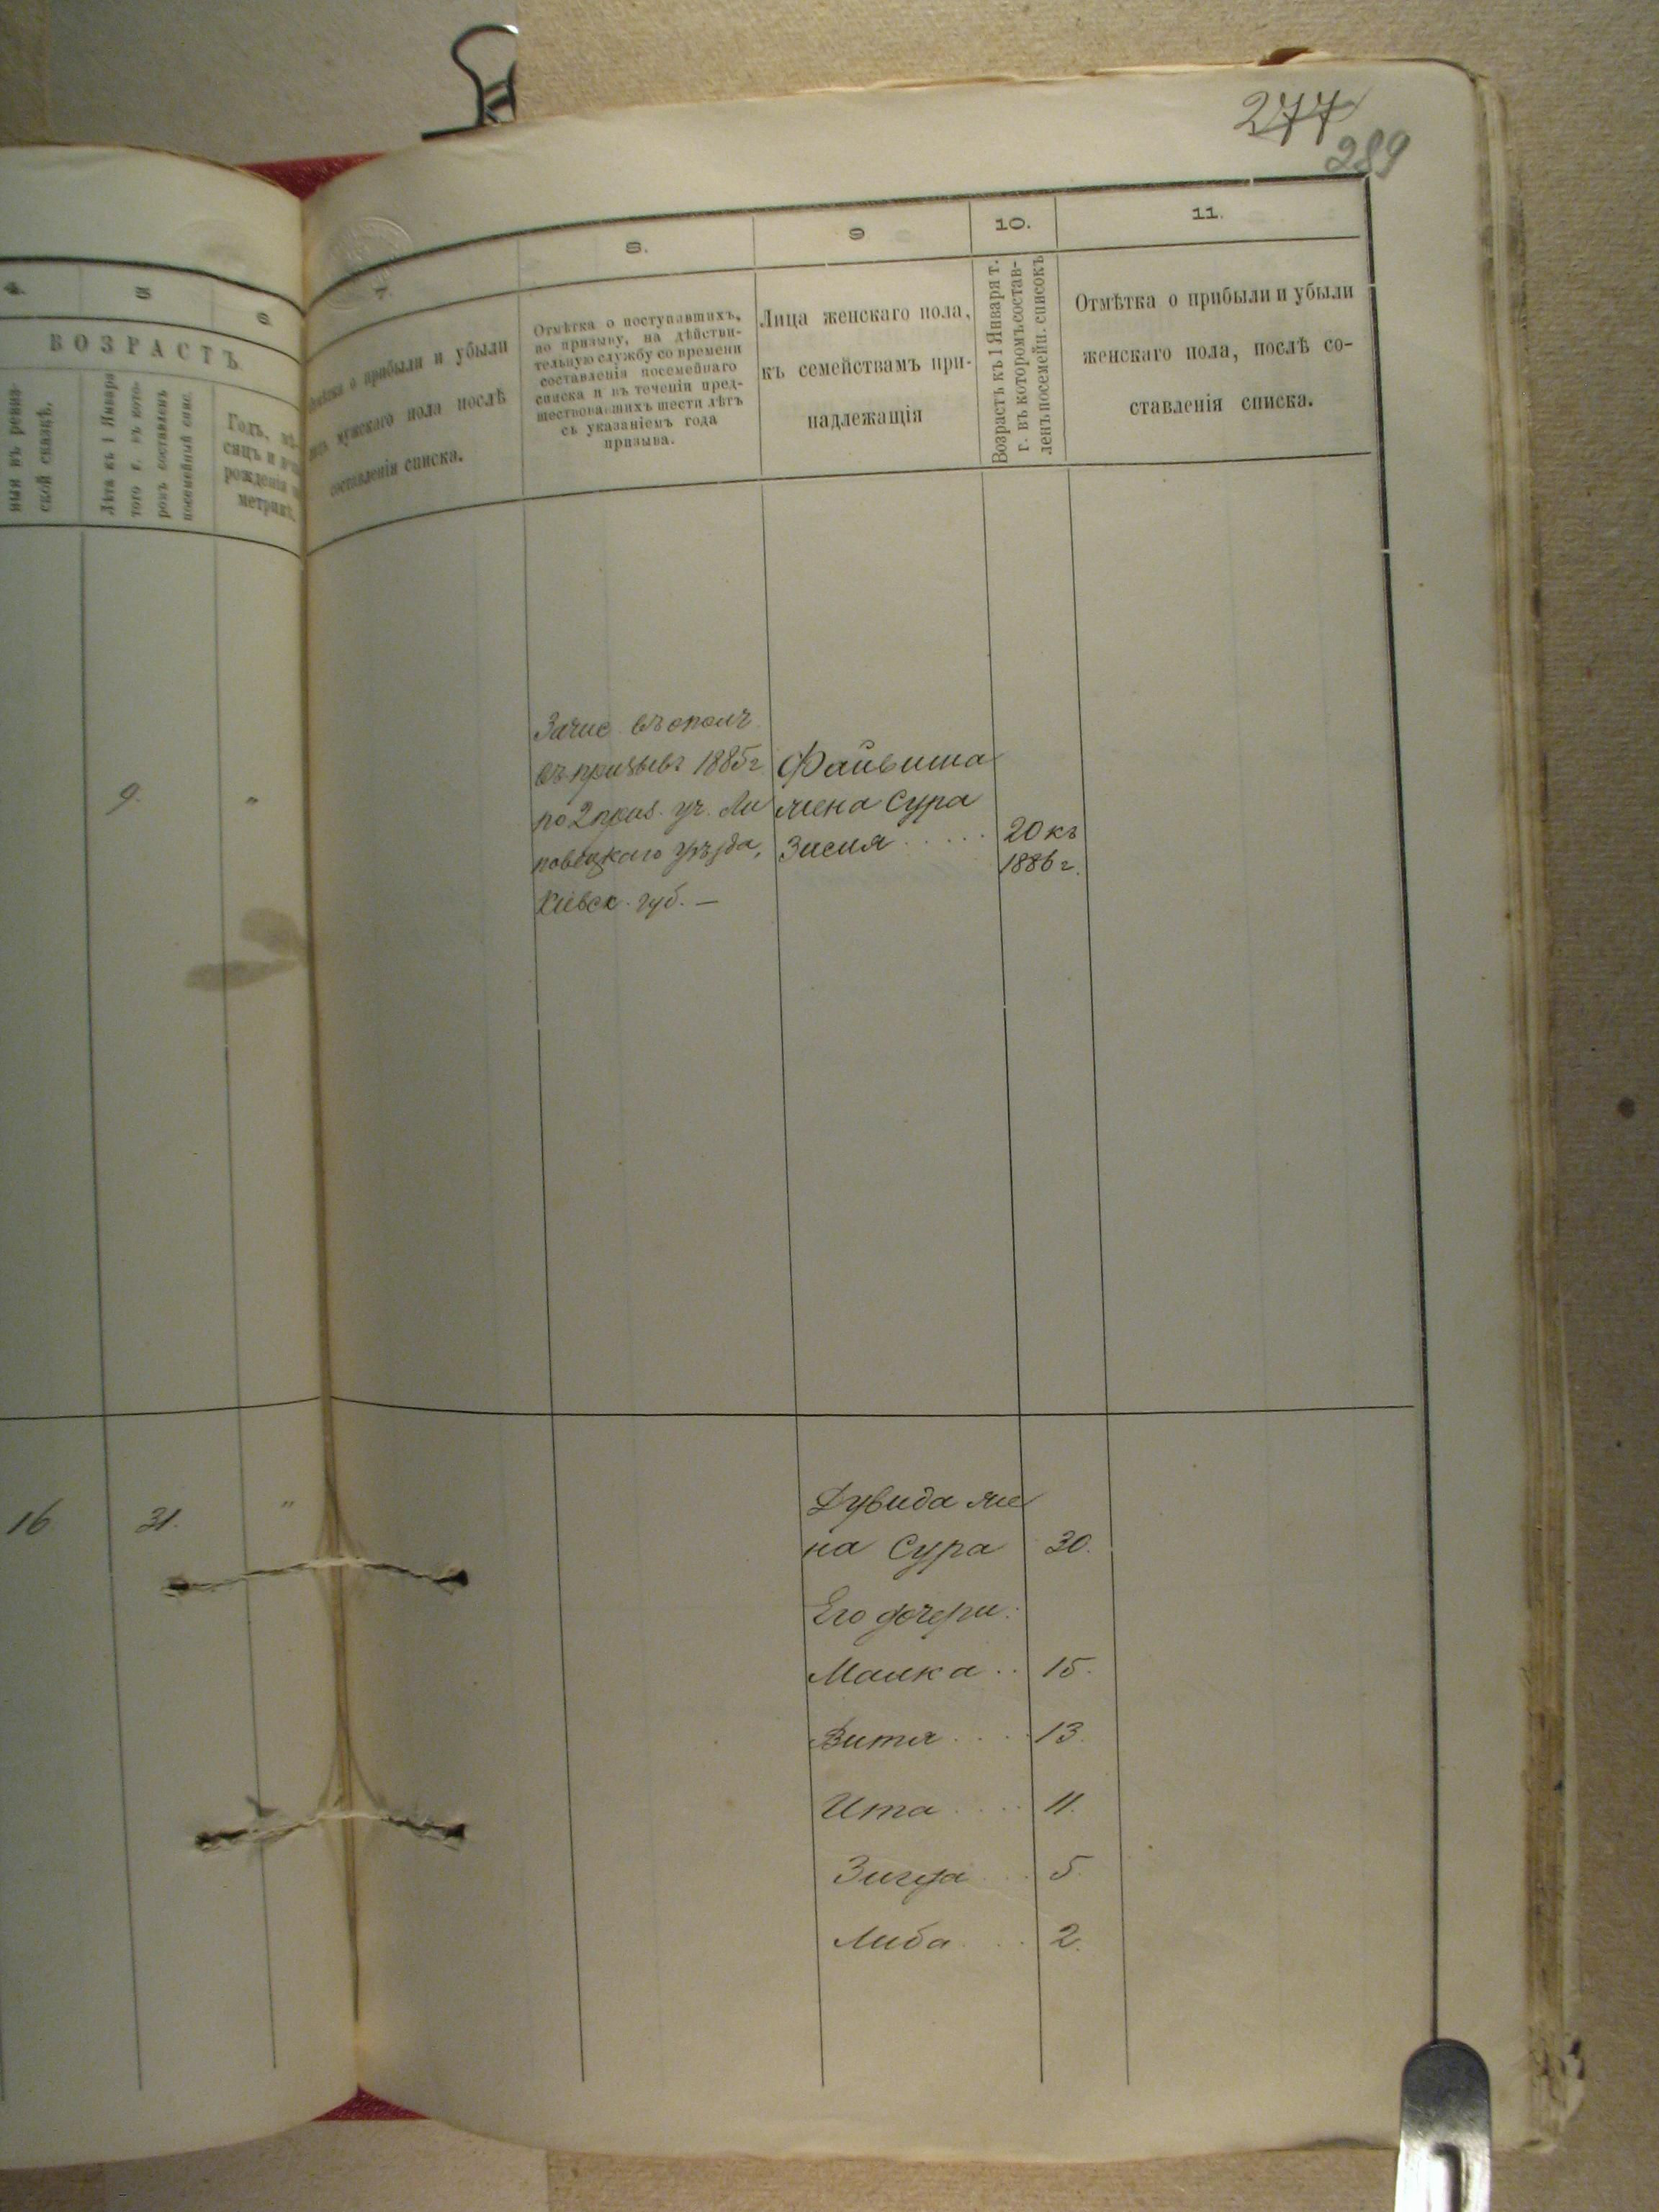 277
289
4.
5
6.
ВОЗРАСТЪ.
ныя въ ревиз-
ской сказкѣ.
Лѣта къ 1 Января
того г. въ кото-
ромъ составленъ
посемейный спис.
Годъ, мѣ-
сяцъ и
рожденія
метрикѣ.
7.
о прибыли и убыли
мужскаго пола послѣ
составленія списка.
8.
Отмѣтка о поступавшихъ,
по призыву, на дѣйстви-
тельную службу со времени
составленія посемейнаго
списка и въ теченіи пред-
шествовавшихъ шести лѣтъ
съ указаніемъ года
призыва.
9
Лица женскаго пола,
къ семействамъ при-
надлежащія
10.
Возрастъ къ 1 Января т.
г. въ которомъ состав-
ленъ посемейн. списокъ
11.
Отмѣтка о прибыли и убыли
женскаго пола, послѣ со-
ставленія списка.
9.
"
Зачис. въ ополч.
въ призывъ 1885 г.
по 2 приз. уч. Ли
повецкаго уѣзда,
Кіевск. губ. —
Файвиша
жена Сура
Зисля . . . . .
20 къ
1886 г.
16
31.
"
Дувида же
на Сура
30.
Его дочери:
Малка . .
15.
Витя . . . .
13.
Ита . . . .
11.
5.
Либа . . .
2.